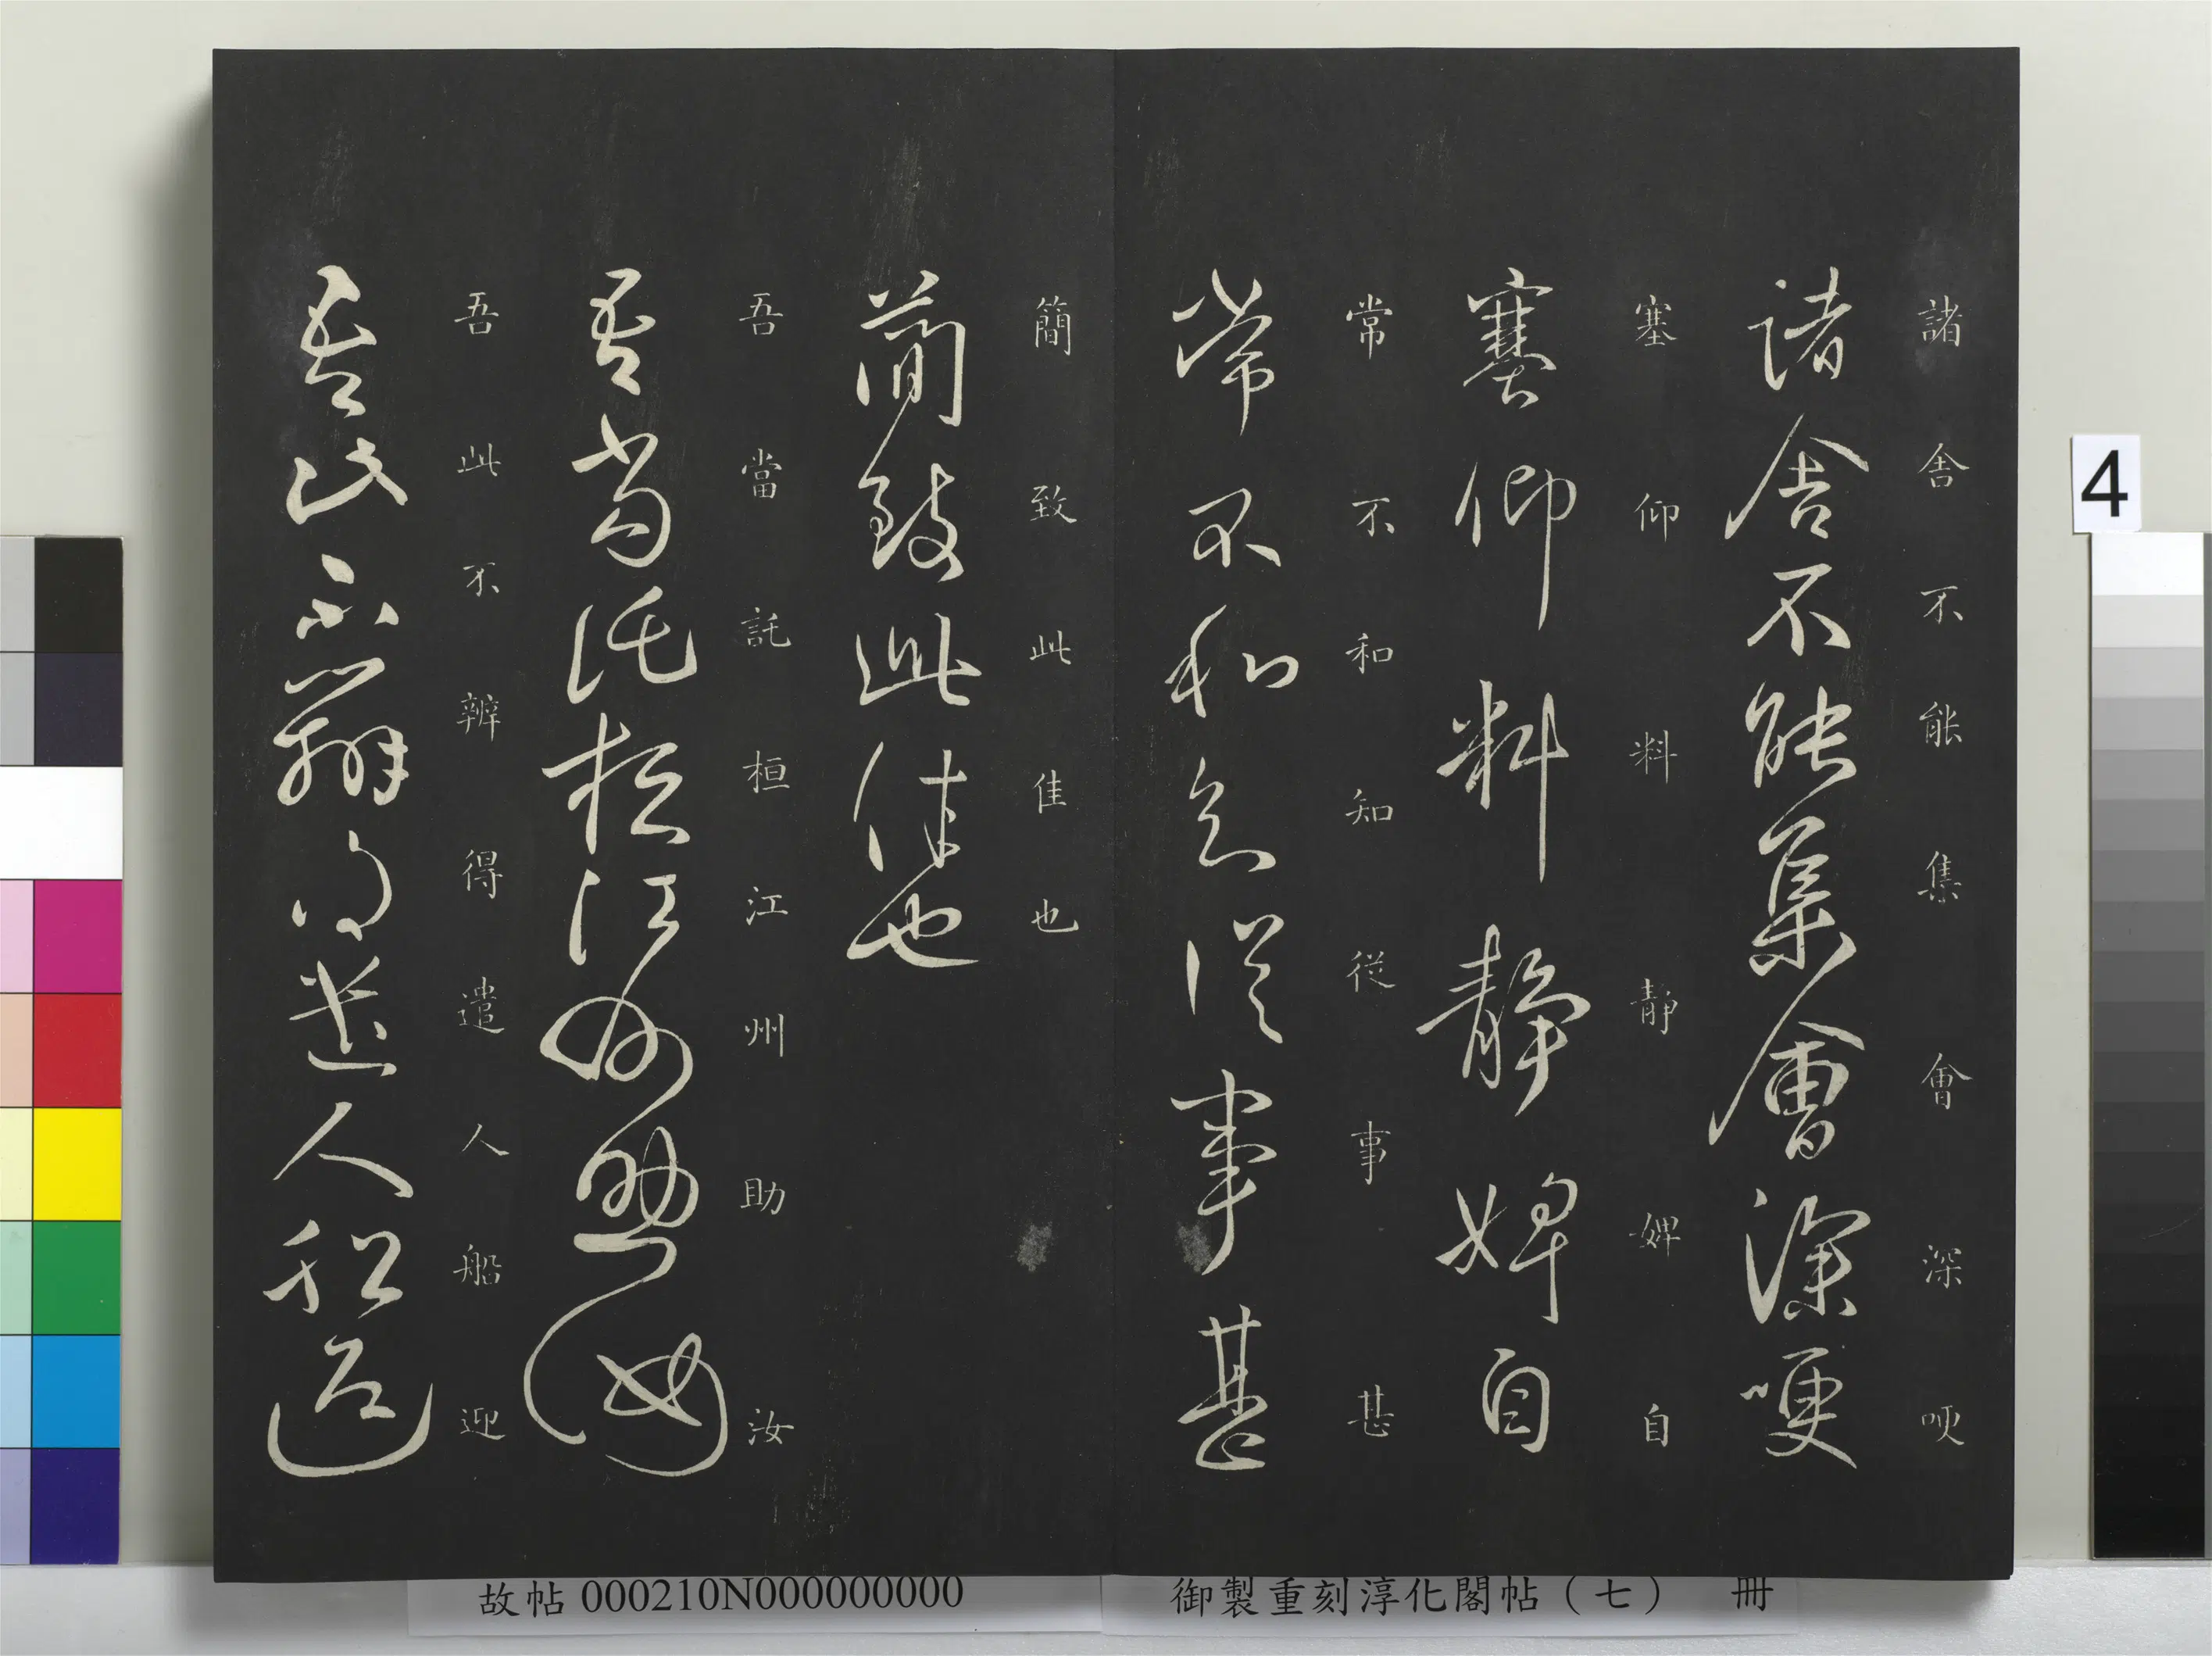 諸舍不能集會深哽
諸舍不能集會深哽
塞仰料靜婢自
塞仰料靜婢自
常不和知從事甚
常不和知從事甚
簡致此佳也
簡致此佳也
吾當託桓江州助汝
吾當託桓江州助汝
吾此不辨得遣人船迎
吾此不辨得遣人船迎
4
故帖 000210N000000000
御製重刻淳化閣帖（七） 冊